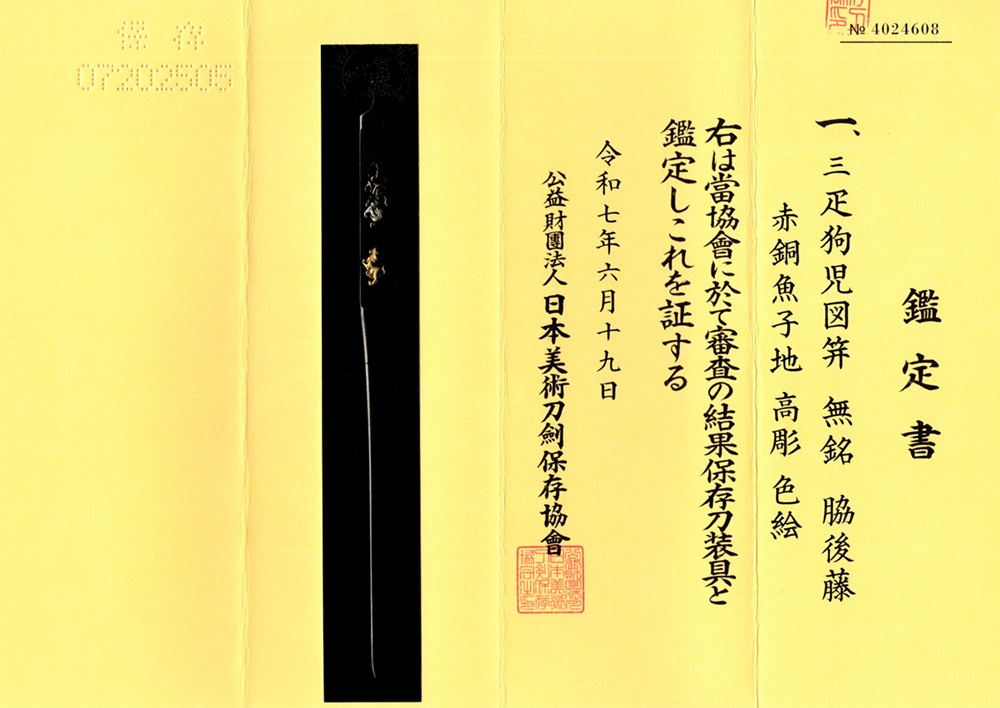 № 4024608
鑑定書
一、三疋狗児図笄 無銘 脇後藤
赤銅魚子地 高彫 色絵
右は當協會に於て審査の結果保存刀装具と
鑑定しこれを証する
令和七年六月十九日
公益財團法人日本美術刀劍保存協會
保存
07202505